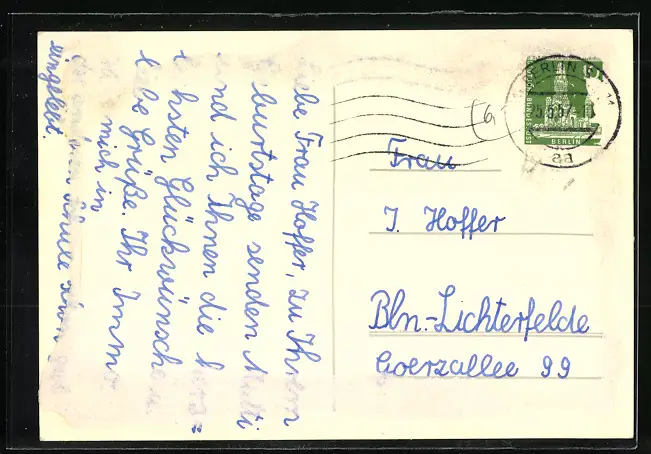 Liebe Frau Hoffer, zu Ihrem
Geburtstage senden Mutti
und ich Ihnen die herz=
lichsten Glückwünsche u.
liebe Grüße. Ihr Immo
mich in
Schule
eingelebt.
BERLIN
aa
DEUTSCHE BUNDESPOST
BERLIN
Frau
J. Hoffer
Bln.-Lichterfelde
Goerzallee 99